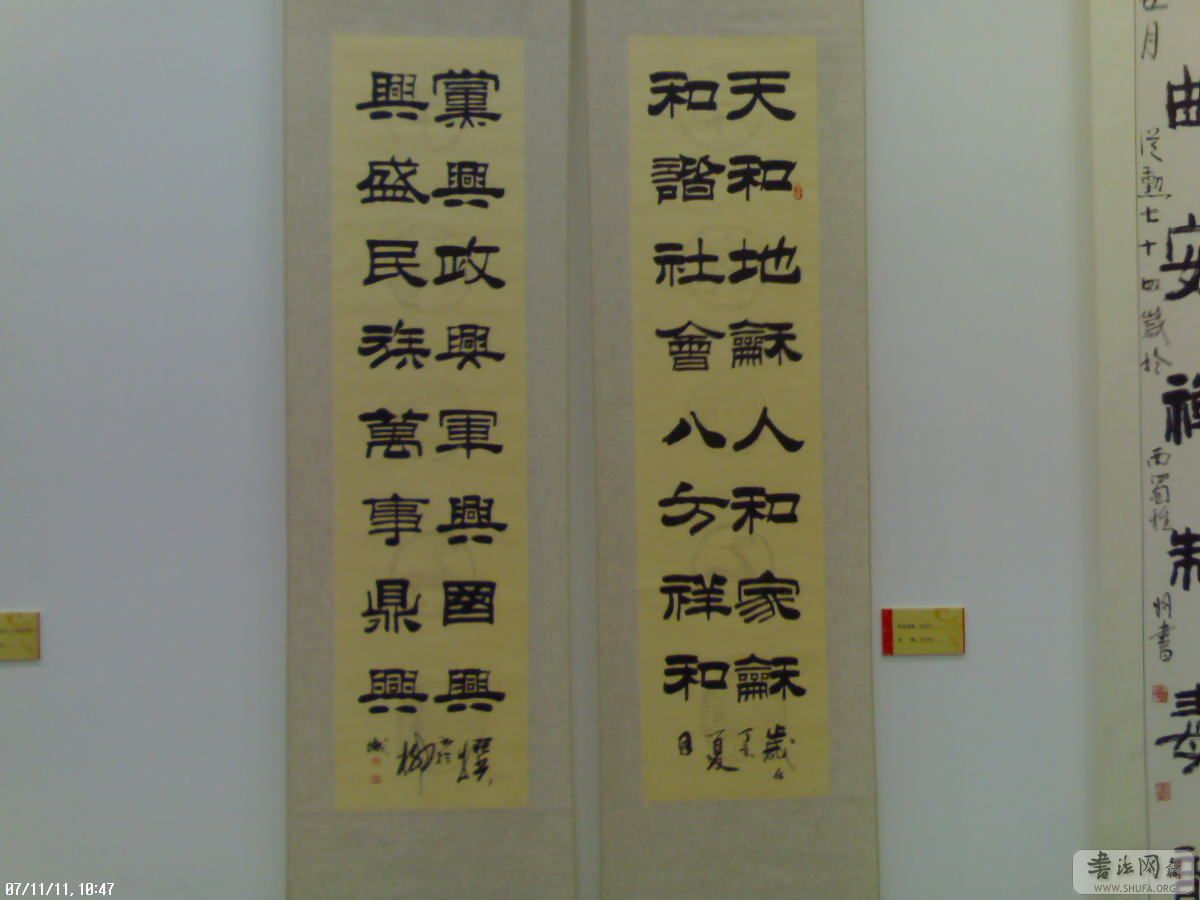 天和地龢人和家龢
和諧社會八方祥和
歲在
丁亥
夏
月
黨興政興軍興國興
興盛民族萬事鼎興
撰
五月
從勳七十四歲於
西蜀
書
曲
安
禅
書法网
WWW.SHUFA.ORG
07/11/11, 10:47